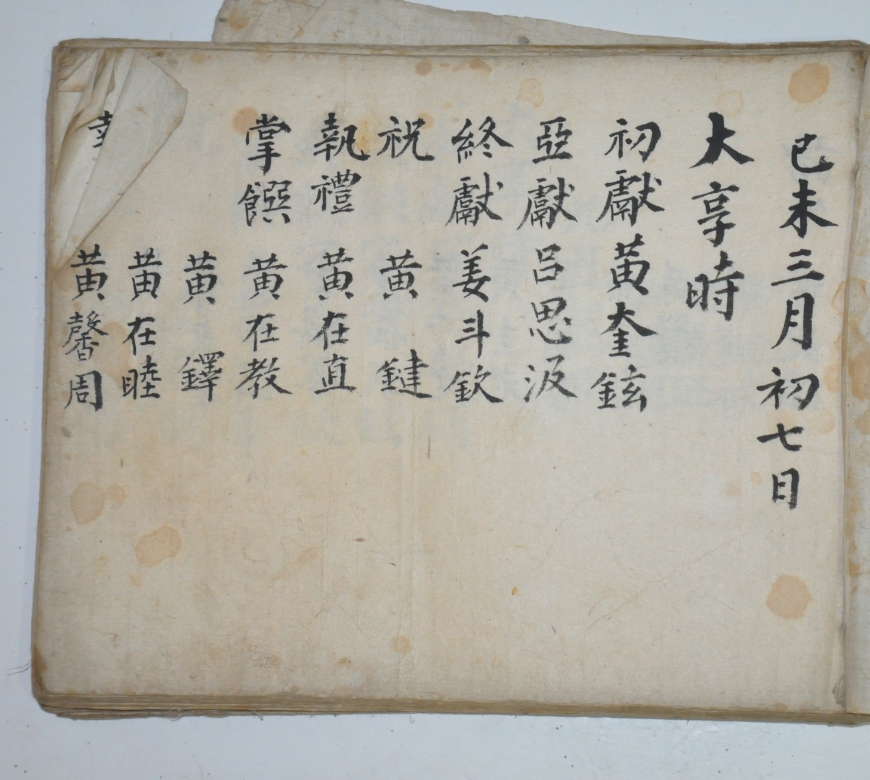 己未三月初七日
大享時
初獻黃奎鉉
亞獻呂思汲
終獻姜斗欽
祝 黃 鍵
執禮 黃在直
掌饌 黃在教
黃 鐸
黃在睦
黃馨周